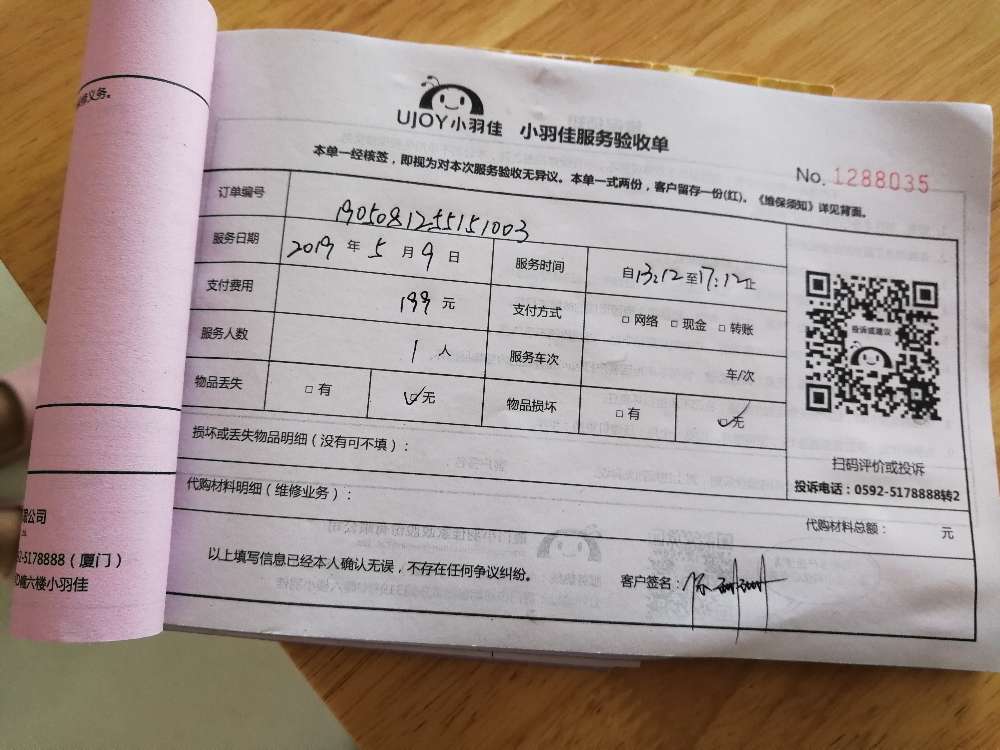 修义务。
UJOY小羽佳 小羽佳服务验收单
本单一经核签，即视为对本次服务验收无异议。本单一式两份，客户留存一份(红)。《维保须知》详见背面。
No. 1288035
订单编号 1905081255151003
服务日期 2019 年 5 月 9 日 服务时间 自13:12至17:12止
支付费用 199 元 支付方式 □ 网络 □ 现金 □ 转账
服务人数 1 人 服务车次 车/次
物品丢失 □ 有 ☑无 物品损坏 □ 有 ☑无
损坏或丢失物品明细（没有可不填）：
投诉或建议
扫码评价或投诉
投诉电话：0592-5178888转2
代购材料明细（维修业务）：
代购材料总额： 元
以上填写信息已经本人确认无误，不存在任何争议纠纷。
客户签名：
公司
2-5178888（厦门）
D幢六楼小羽佳